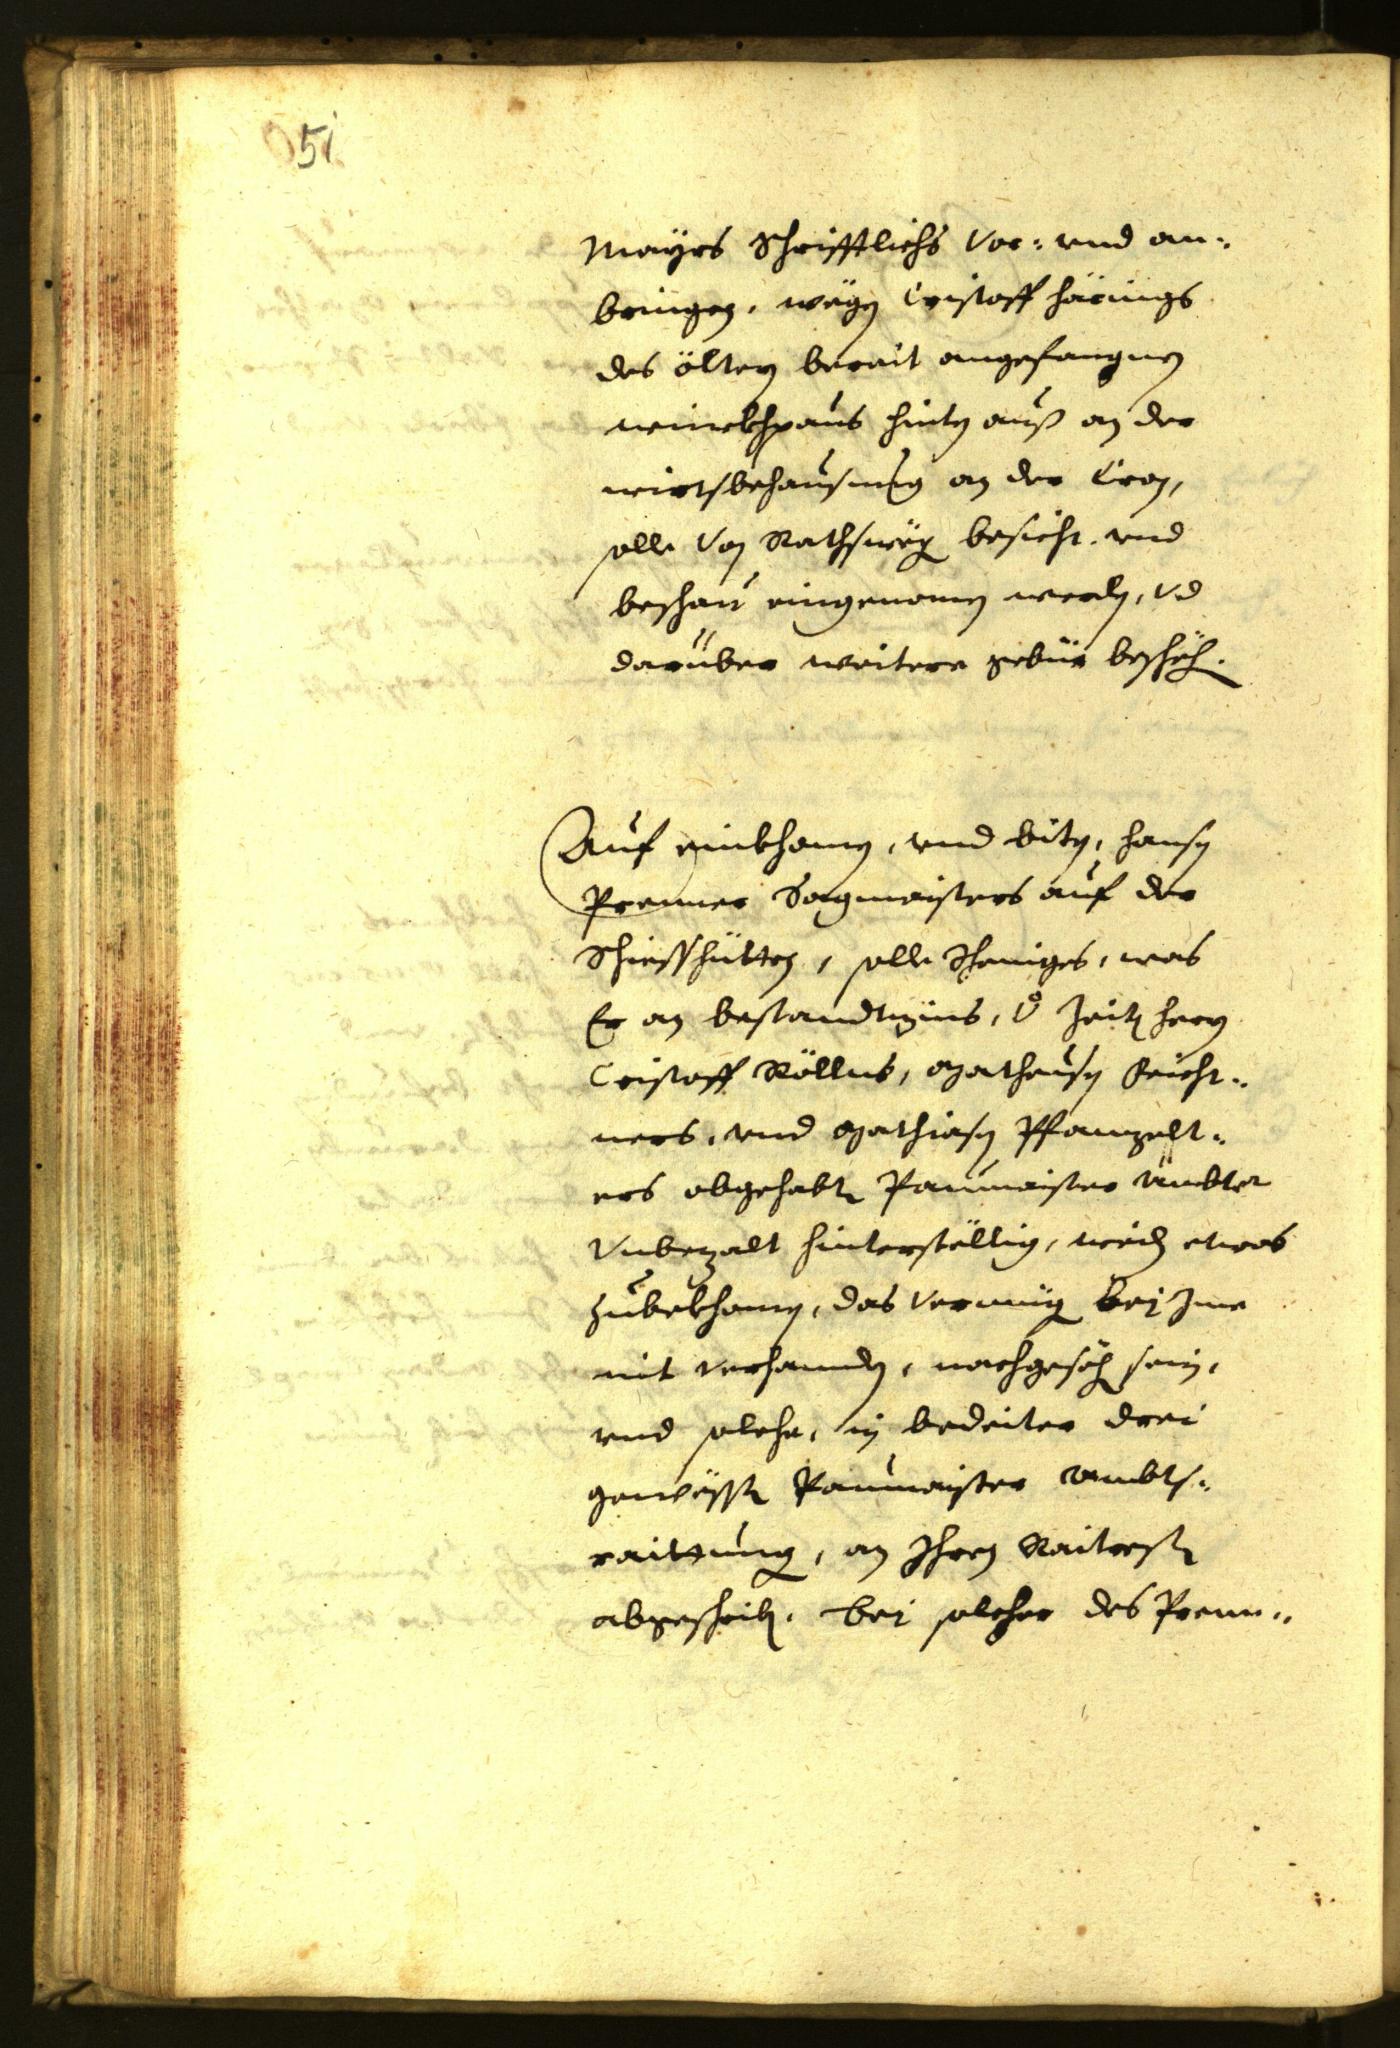 51
Mayrs Schrifftlichs Vor- vnd an-
bringen, wegen Cristoff Härings
des öltern berait angefangnen
winckhpaus hinten auß an der
wirtsbehausung an der Cron,
solle Von Rathsweg besicht vnd
beschau eingenomen werden, Vnd
darüber weitere gebür beschehen.
Auf einkhomen, vnd biten, Hansen
Prenner Sagmaisters auf der
Schießhütten, solle Iheniges, was
Er an bestandtzins, der Zeit herrn
Cristoff Röllns, Matheusen Feicht-
ners, vnd Mathiasen Pfanzelt-
ers abgehabten Paumaister ämbter
Vnbezalt hinterstellig, weil etwas
zubekhomen, das Vermüg bei Ime
nit verhanden, nachgesehen sein,
vnd solche, in bedeiter drei
gewessten Paumaister ambts-
raittung, an Ihren Raitresten
abgeschriben. bei solcher des Prenn-